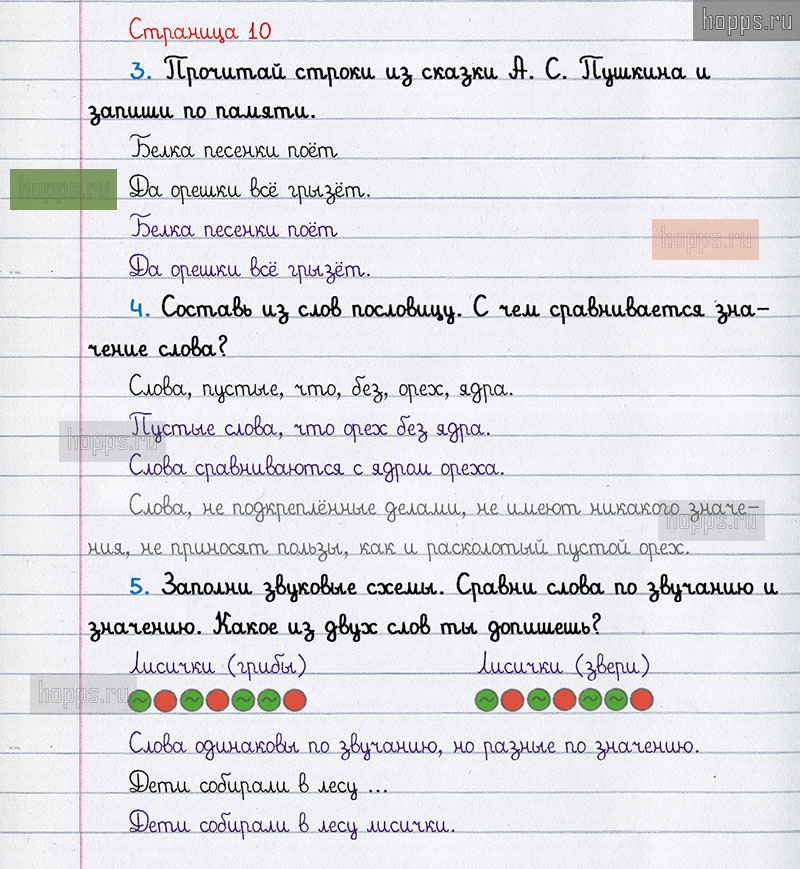 hopps.ru
Страница 10
3. Прочитай строки из сказки А. С. Пушкина и
запиши по памяти.
Белка песенки поёт
hopps.ru
Да орешки всё грызёт.
Белка песенки поёт
hopps.ru
Да орешки всё грызёт.
4. Составь из слов пословицу. С чем сравнивается зна-
чение слова?
Слова, пустые, что, без, орех, ядра.
Пустые слова, что орех без ядра.
hopps.ru
Слова сравниваются с ядром ореха.
Слова, не подкреплённые делами, не имеют никакого значе-
hopps.ru
ния, не приносят пользы, как и расколотый пустой орех.
5. Заполни звуковые схемы. Сравни слова по звучанию и
значению. Какое из двух слов ты допишешь?
Лисички (грибы) Лисички (звери)
hopps.ru
Слова одинаковы по звучанию, но разные по значению.
Дети собирали в лесу ...
Дети собирали в лесу лисички.